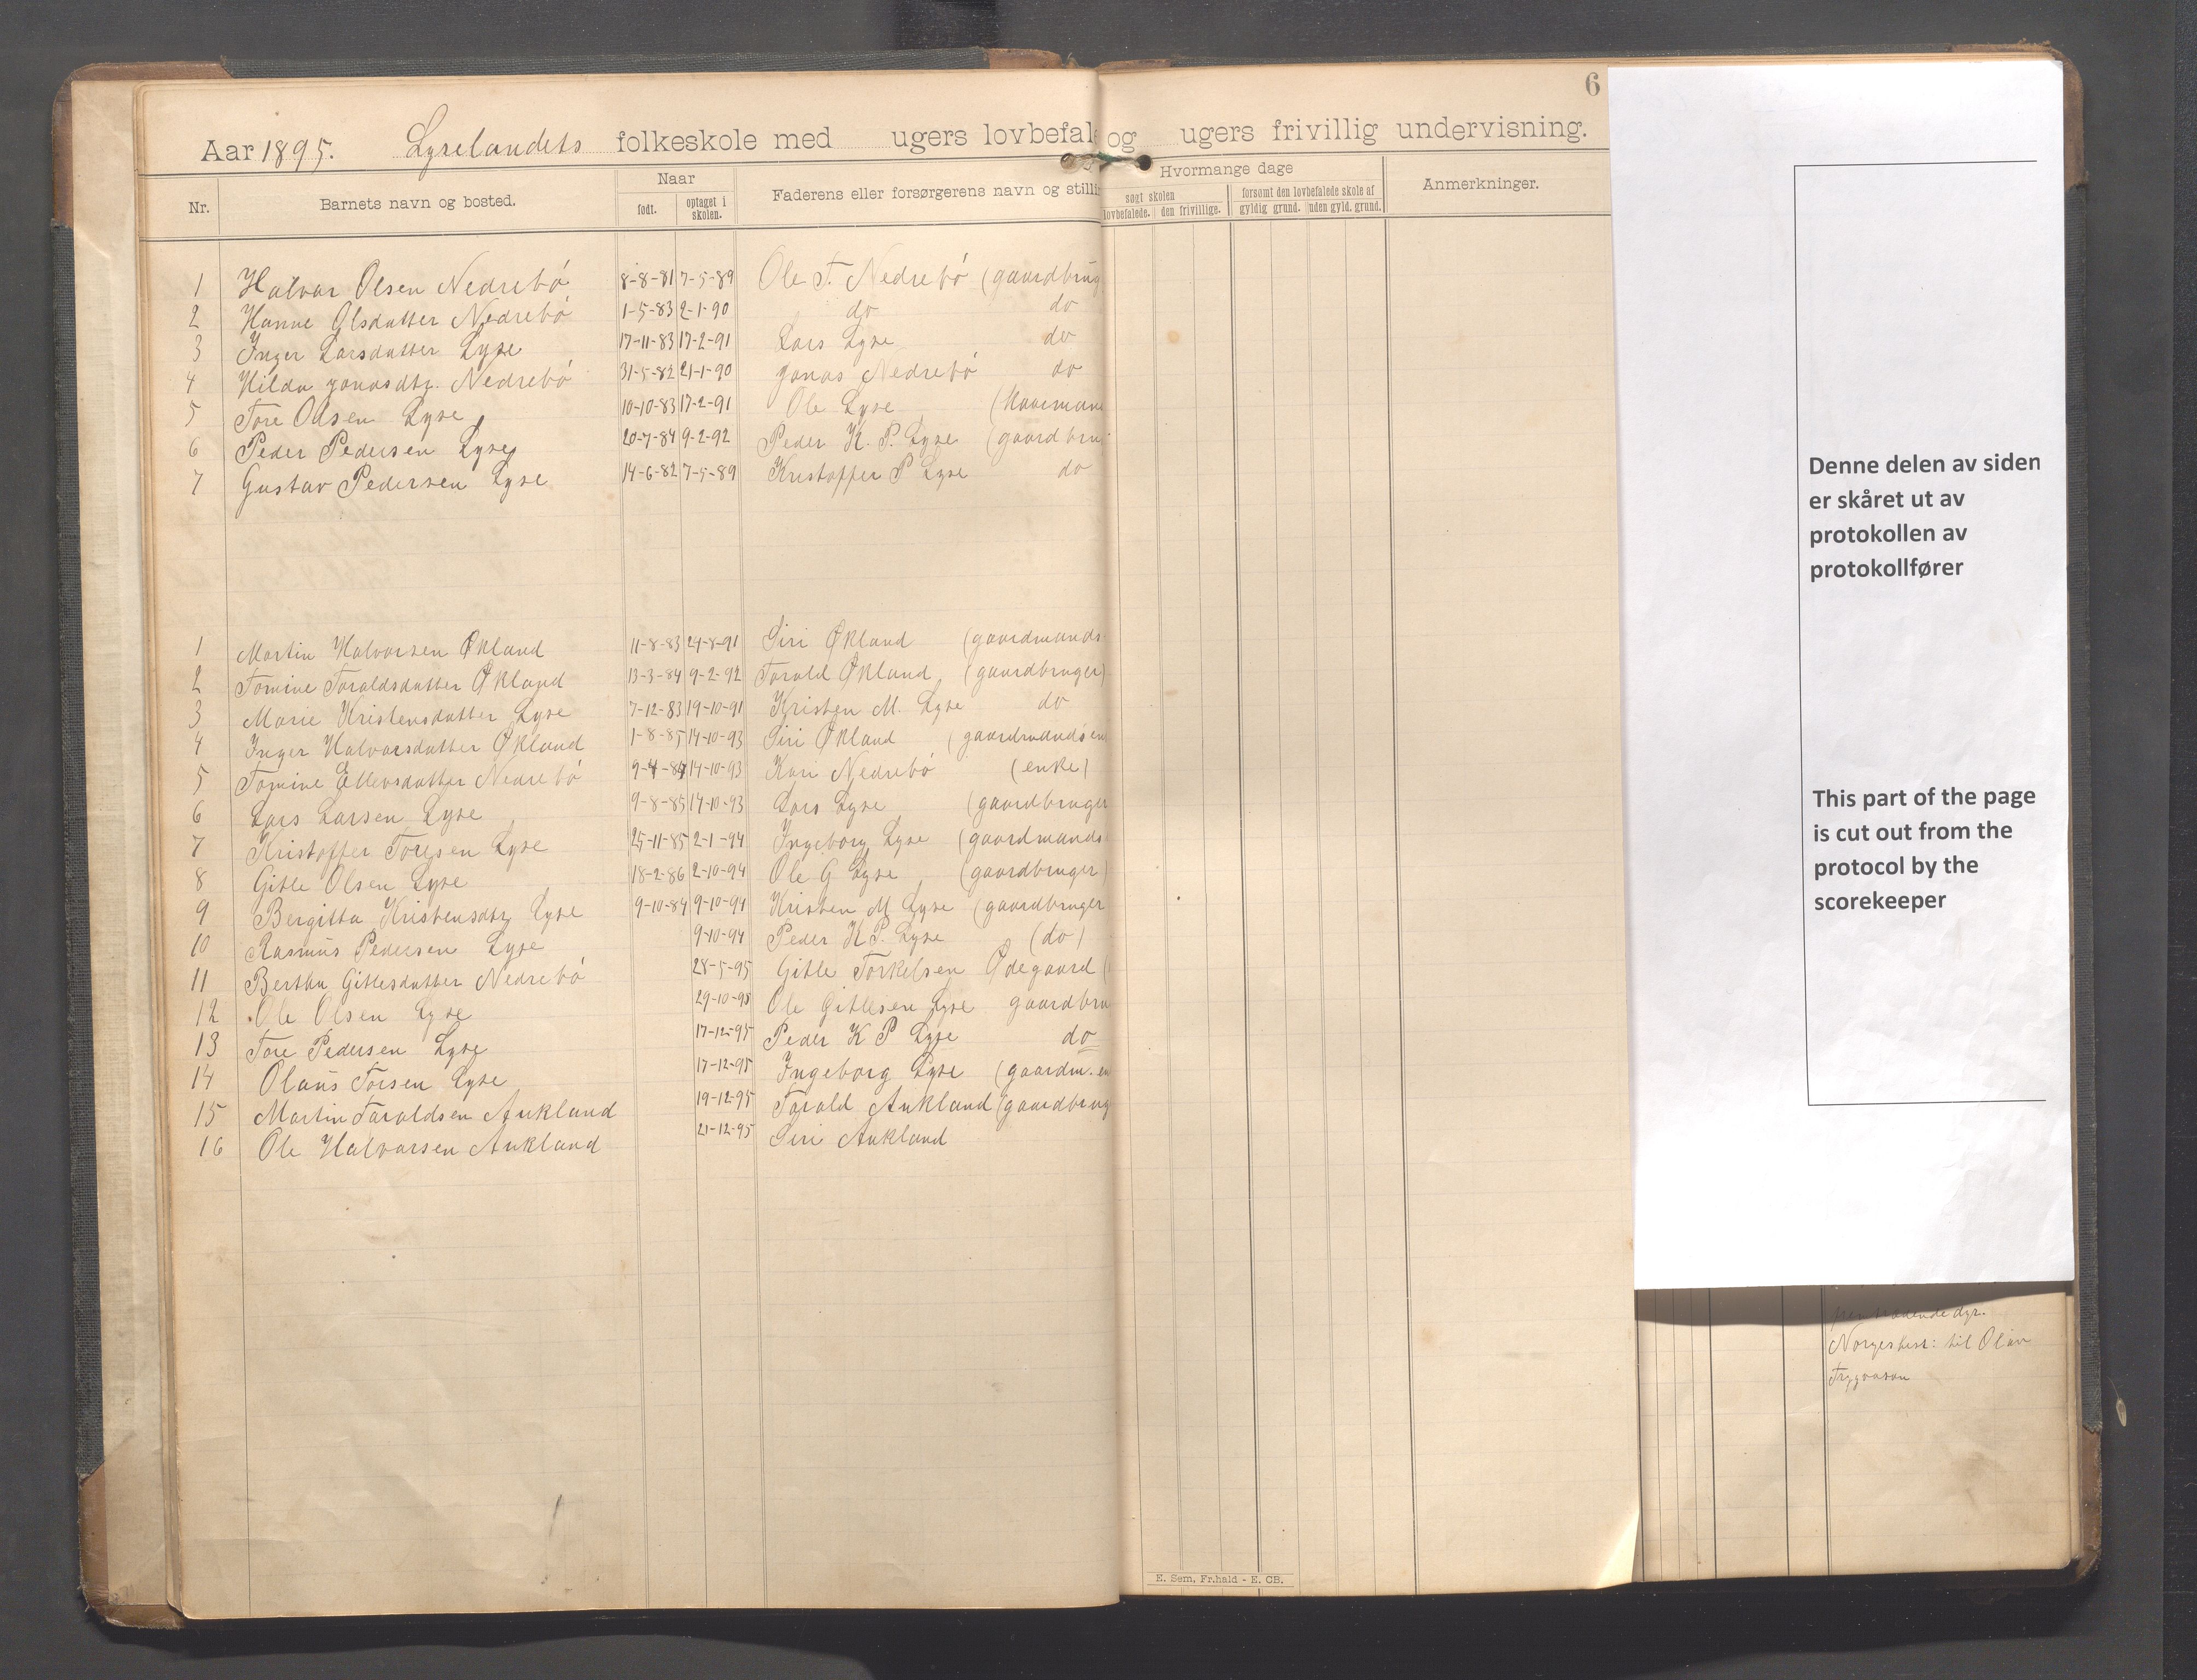 6
Aar 1895. Lyselandets folkeskole med ugers lovbefal og ugers frivillig undervisning.
Nr. Barnets navn og bosted. Naar født. optaget i skolen. Faderens eller forsørgerens navn og stillin Hvormange dage søgt skolen lovbefalede. den frivillige. forsømt den lovbefalede skole af gyldig grund. uden gyld. grund. Anmerkninger.
1 Halvar Olsen Nedrebó 8-8-81 7-5-89 Ole T. Nedrebó (gaardbrug
2 Hanne Olsdatter Nedrebó 1-5-83 2-1-90 do do
3 Inger Larsdatter Lyse 17-11-83 17-2-91 Lars Lyse do
4 Hilda Jonasdtr. Nedrebó 31-5-82 21-1-90 Jonas Nedrebó do
5 Tore Olsen Lyse 10-10-83 17-2-91 Ole Lyse (Kaarmand
6 Peder Pedersen Lyse 20-7-84 9-2-92 Peder K. P. Lyse (gaardbrug
7 Gustav Pedersen Lyse 14-6-82 7-5-89 Kristoffer P Lyse do
1 Martin Halvorsen Økland 11-8-83 24-8-91 Siri Økland (gaardmands
2 Tomine Taraldsdatter Økland 13-3-84 9-2-92 Tarald Økland (gaardbruger)
3 Marie Kristensdatter Lyse 7-12-83 19-10-91 Kristen M. Lyse do
4 Inger Halvorsdatter Økland 1-8-85 14-10-93 Siri Økland (gaardmands en
5 Tomine Ellevsdatter Nedrebó 9-4-84 14-10-93 Kari Nedrebó (enke)
6 Lars Larsen Lyse 9-8-85 14-10-93 Lars Lyse (gaardbruger
7 Kristoffer Toresen Lyse 25-11-85 2-1-94 Ingeborg Lyse (gaardmands
8 Gitle Olsen Lyse 18-2-86 2-10-94 Ole G Lyse (gaardbruger)
9 Bergitta Kristensdtr Lyse 9-10-84 9-10-94 Kristen M Lyse (gaardbruger
10 Rasmus Pedersen Lyse 9-10-94 Peder K P. Lyse (do)
11 Bertha Gitlesdatter Nedrebó 28-5-95 Gitle Torkelsen Ødegaard (
12 Ole Olsen Lyse 29-10-95 Ole Gitlesen Lyse gaardbru
13 Tore Pedersen Lyse 17-12-95 Peder K P Lyse do
14 Olaus Torsen Lyse 17-12-95 Ingeborg Lyse (gaardm. en
15 Martin Taraldsen Aukland 19-12-95 Tarald Aukland (gaardbrug
16 Ole Halvarsen Aukland 21-12-95 Siri Aukland
E. Sem, Fr.hald - E. CB.
Denne delen av siden
er skåret ut av
protokollen av
protokollfører
This part of the page
is cut out from the
protocol by the
scorekeeper
dyr.
Norgeshist: til Olav
Trygvason